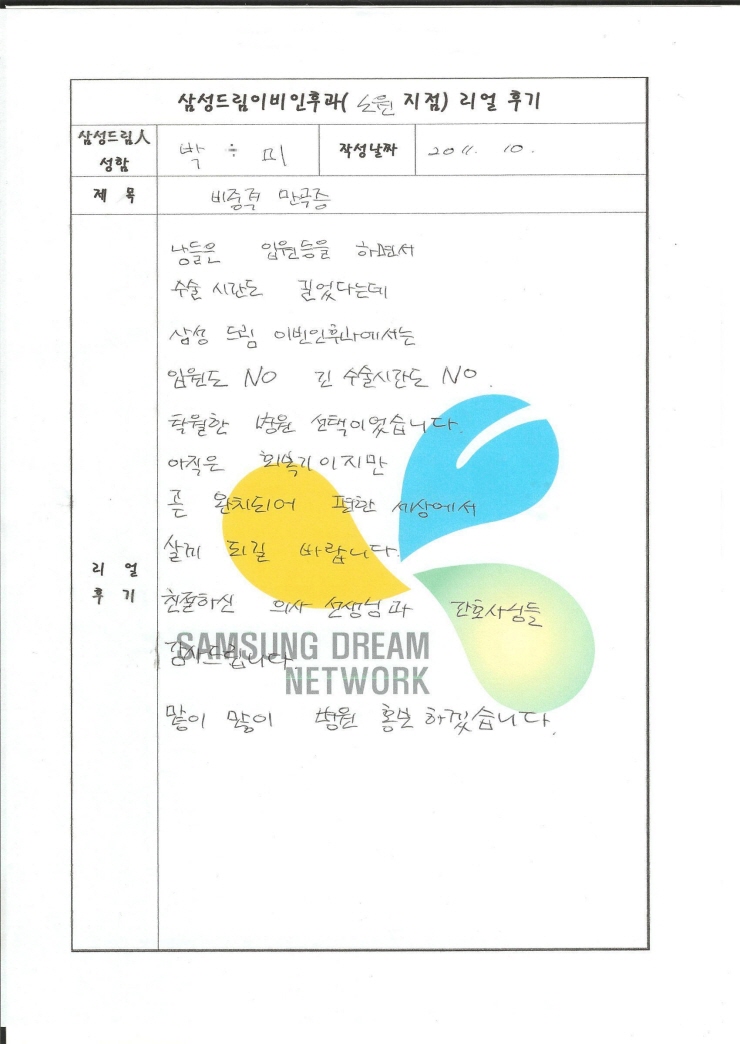 삼성드림이비인후과( 노원 지점) 리얼 후기
삼성드림人 성함
박 ÷ 미
작성날짜
2011. 10.
제 목
비중격 만곡증
리 얼 후 기
남들은 입원등을 하면서
수술 시간도 길었다는데
삼성 드림 이빈인후과에서는
입원도 NO 긴 수술시간도 NO.
탁월한 병원 선택이었습니다.
아직은 회복기이지만
곧 완치되어 편한 세상에서
살게 되길 바랍니다.
친절하신 의사 선생님과 간호사님들
감사드립니다
많이 많이 병원 홍보 하겠습니다.
SAMSUNG DREAM
NETWORK